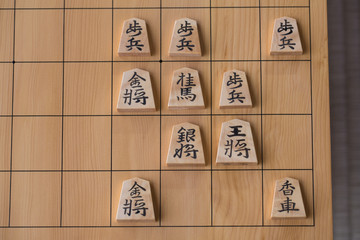 歩兵
歩兵
歩兵
金将
桂馬
歩兵
銀将
王将
金将
香車